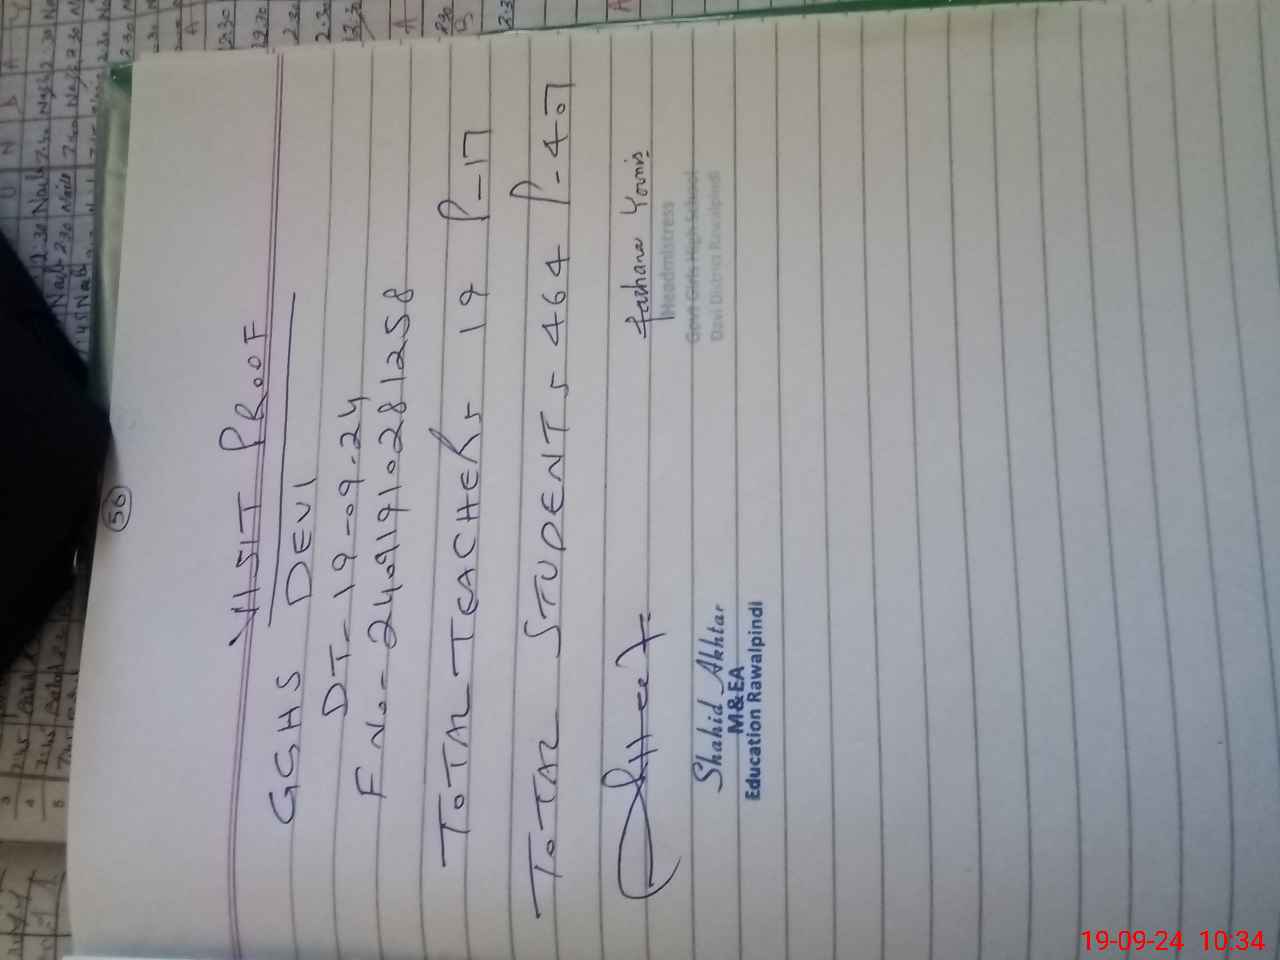 56
VISIT PROOF
GGHS DEVI
DT-19-09-24
F No.-2409191028 1258
TOTAL TEACHERS 19 P-17
TOTAL STUDENTS 464 P-407
Farhana Younis
Headmistress
Govt Girls High School
Davi District Rawalpindi
Shahid Akhtar
M&EA
Education Rawalpindi
19-09-24 10:34